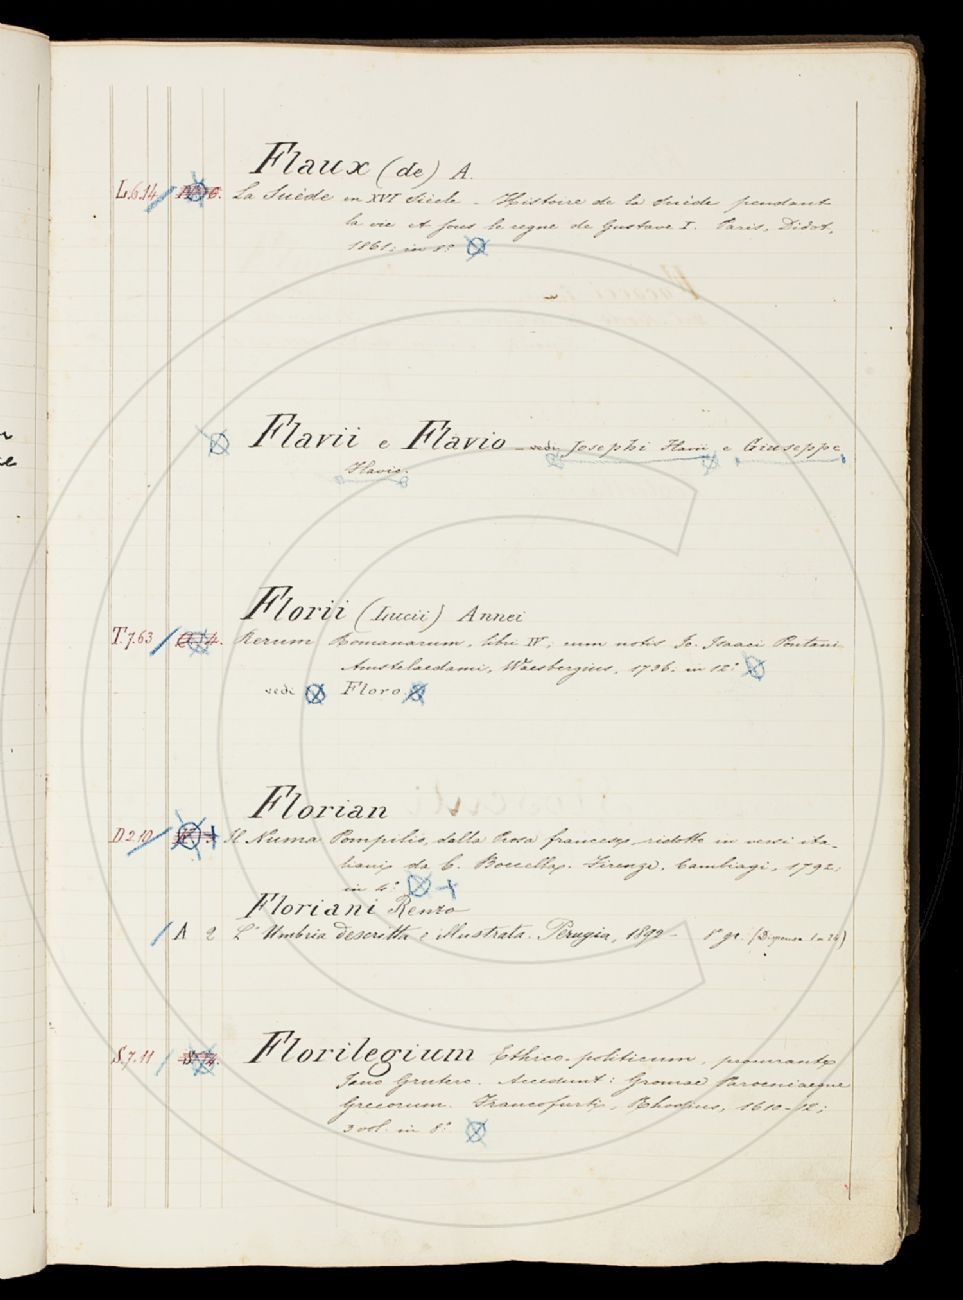 Flaux (de) A.
L.6.14 La Suède en XVI Siècle - Histoire de la Suède pendant
la vie et sous le regne de Gustave I. Paris, Didot,
1861; in 8°
Flavii e Flavio - vedi Josephi Flavii e Giuseppe
Flavio.
Florii (Lucii) Annei
T.7.63 Rerum Romanarum, libri IV, cum notis Jo. Isaaci Pontani
Amstelaedami, Waesbergius, 1736. in 12°
vedi Floro.
Florian
D.2.10 Il Numa Pompilio, dalla Prosa francese ridotto in versi ita-
liani da C. Boccella. Firenze, Cambiagi, 1792;
in 4°
Floriani Renzo
A 2 L'Umbria descritta e illustrata. Perugia, 1892 - 1° gr. (Dispensa 1 a 26)
S.7.11 Florilegium Ethico-politicum, procurante
Jano Grutero. Accedunt: Gnomae Paroemiaeque
Grecorum. Francofurti, Rhodius, 1610-12;
3 vol. in 8°